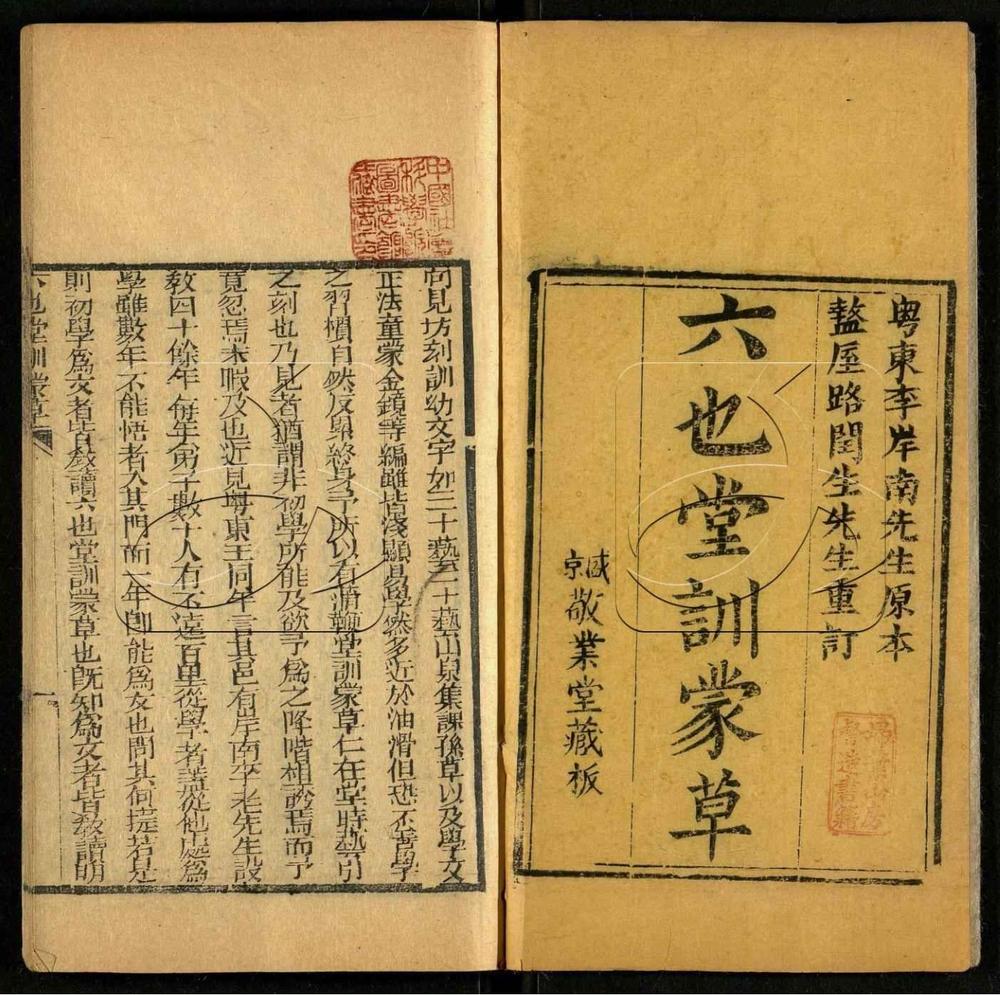 粵東李岸南先生原本
盩厔路閏生先生重訂
六也堂訓蒙草
咸京敬業堂藏板
向見坊刻訓幼文字如三十藝二十藝山泉集課孫草以及學文
正法童蒙金鏡等編雖皆淺顯易學然多近於油滑但恐不善學
之習慣自然反畢終身予所以有清麯堂訓蒙草仁在堂時藝引
之刻也乃見者猶謂非初學所能及欲予爲之降階相詥焉而予
竟忽焉未暇及也近見粵東王同年言其邑有岸南李老先生設
教四十餘年每年弟子數十人有不遠百里從學者葢從他處爲
學雖數年不能悟者入其門而一年卽能爲文也問其何提若是
則初學爲文者皆敎讀六也堂訓蒙草也旣知爲文者皆敎讀明
六也堂訓蒙草
一
中國社會
科學院
圖書館
藏書